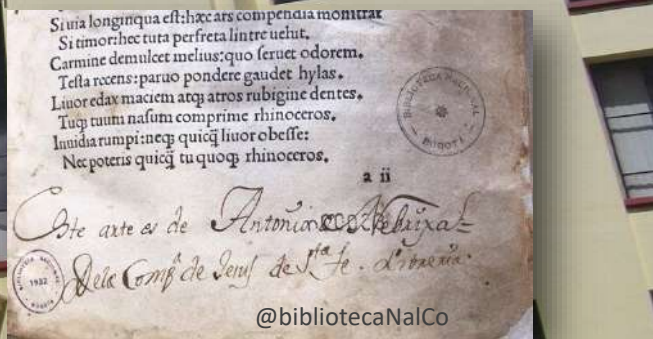 Si uia longinqua est:hæc ars compendia monstrat
Si timor:hec tuta per freta lintre uelut.
Carmine demulcet melius:quo seruet odorem.
Testa recens:paruo pondere gaudet hylas.
Liuor edax maciem atqꝫ atros rubigine dentes.
Tuqꝫ tuum nasum comprime rhinoceros.
Inuidia rumpi:neqꝫ quicq̃ liuor obesse:
Nec poteris quicq̃ tu quoqꝫ rhinoceros.
a ii
BIBLIOTECA NACIONAL
BOGOTA
Este arte es de Antonio de Nebrixa
Dela Compª de Jesus de Sta fe . Libreria.
1932
@bibliotecaNalCo